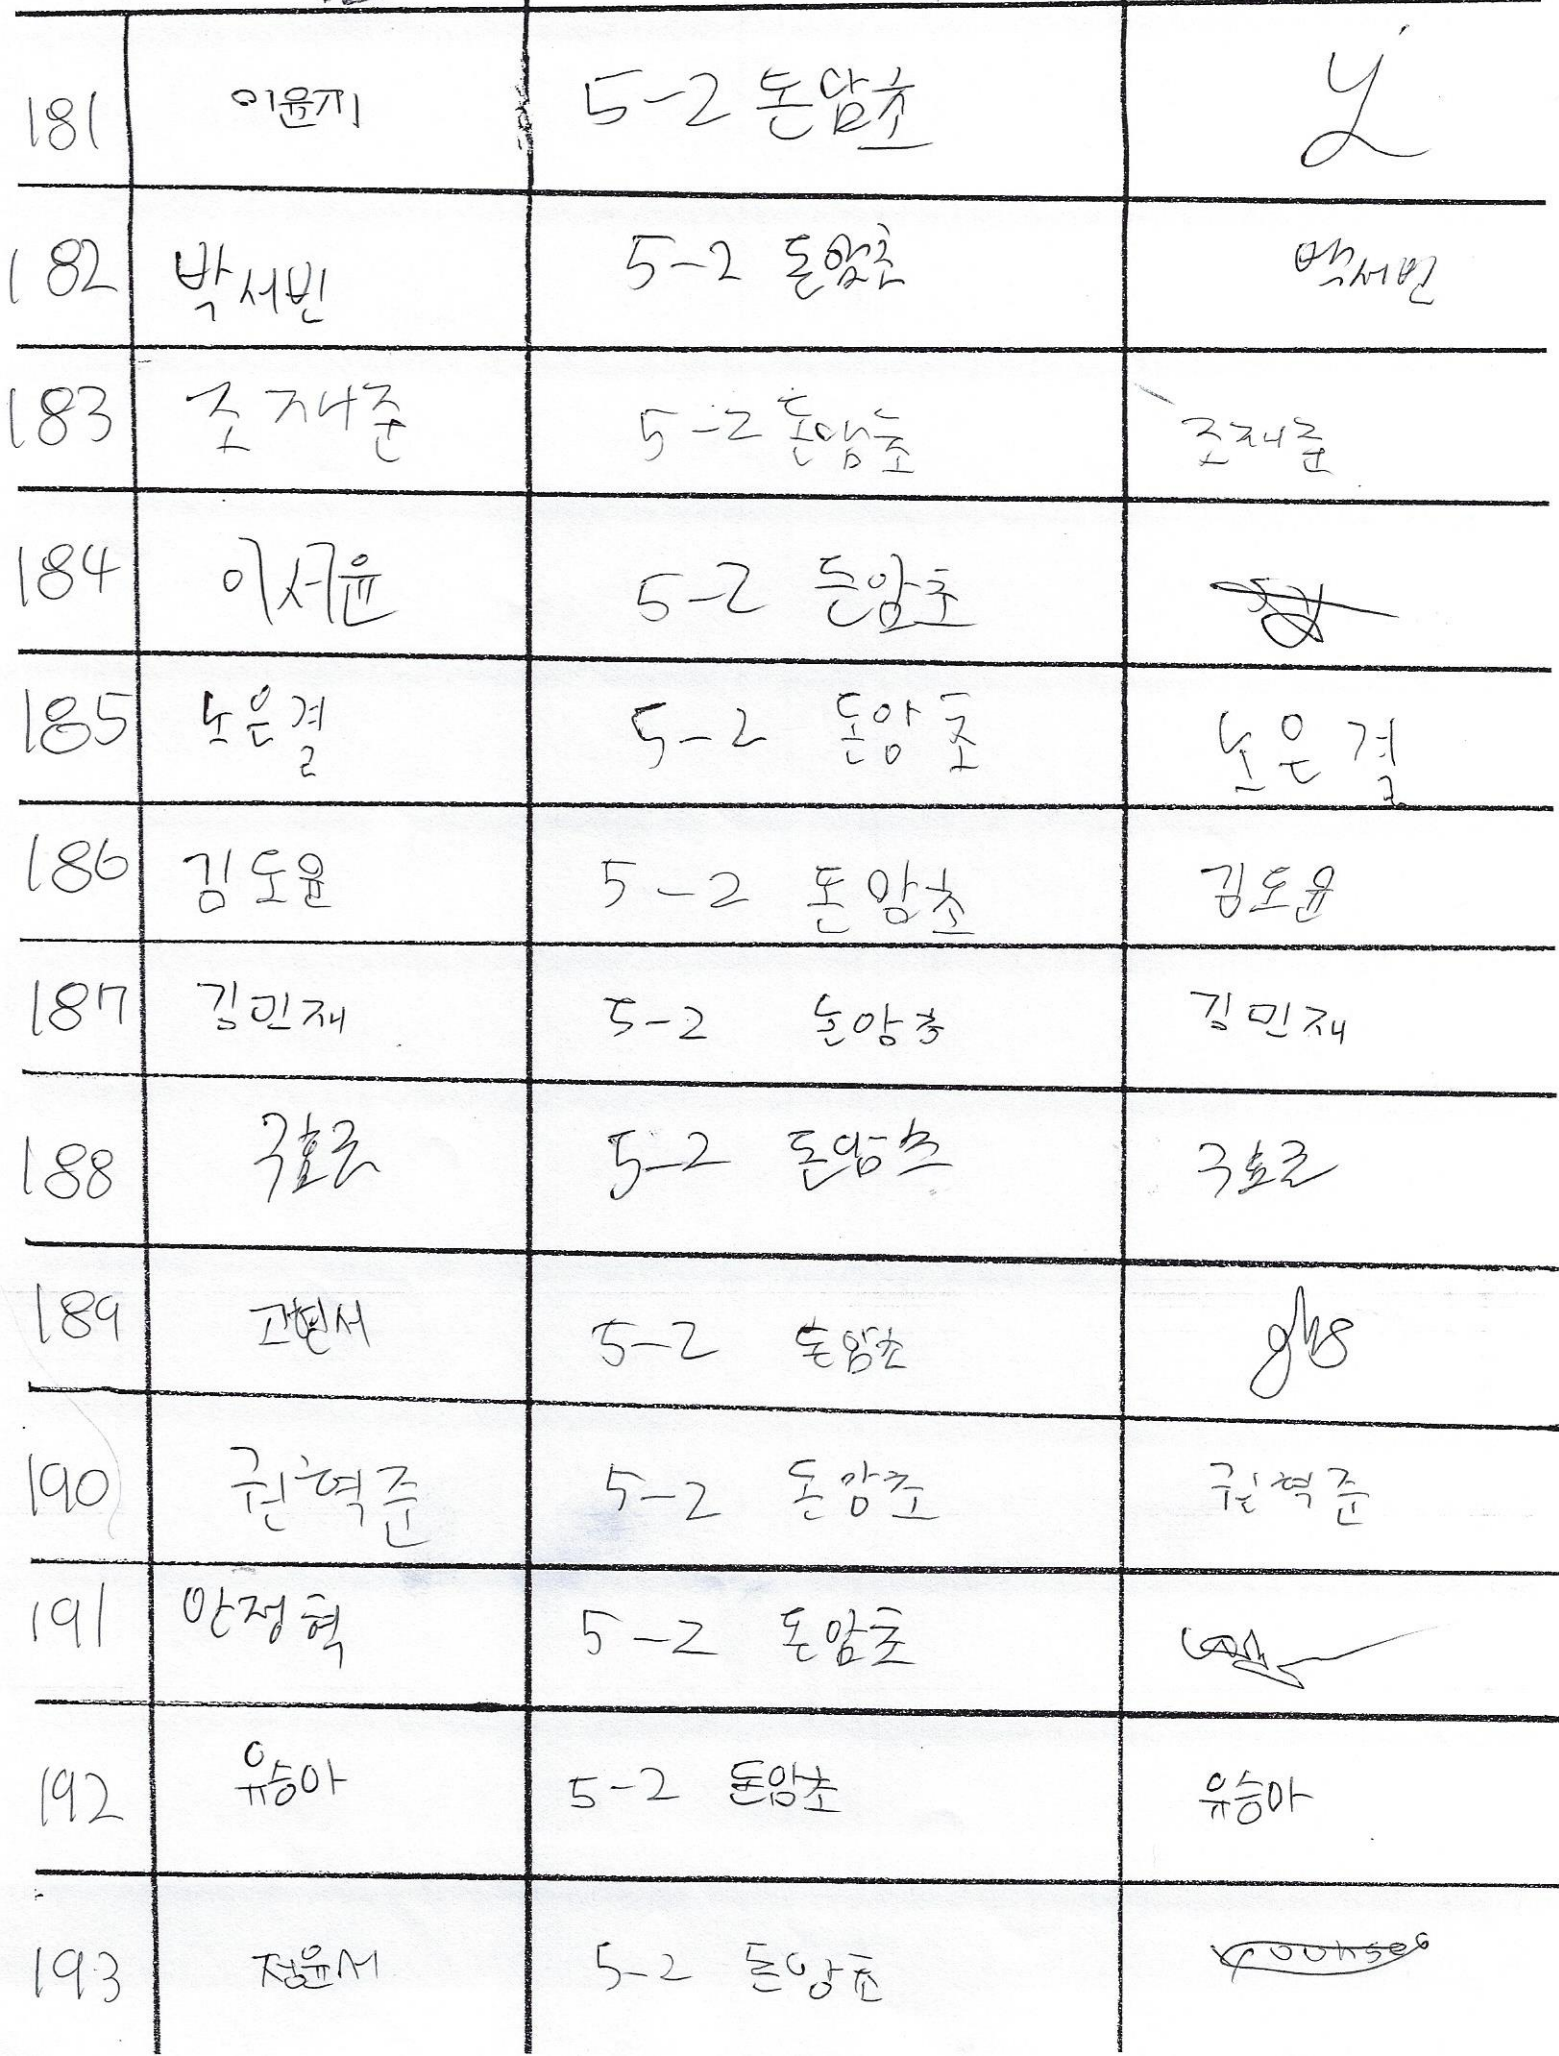 181 이윤지 5-2 돈암초 y
182 박서빈 5-2 돈암초 박서빈
183 조재준 5-2 돈암초 조재준
184 이서윤 5-2 돈암초
185 노은결 5-2 돈암초 노은결
186 김도윤 5-2 돈암초 김도윤
187 김민재 5-2 돈암초 김민재
188 구효근 5-2 돈암초 구효근
189 고현서 5-2 돈암초 ghs
190 권혁준 5-2 돈암초 권혁준
191 안정혁 5-2 돈암초
192 유승아 5-2 돈암초 유승아
193 정윤서 5-2 돈암초 yoonseo